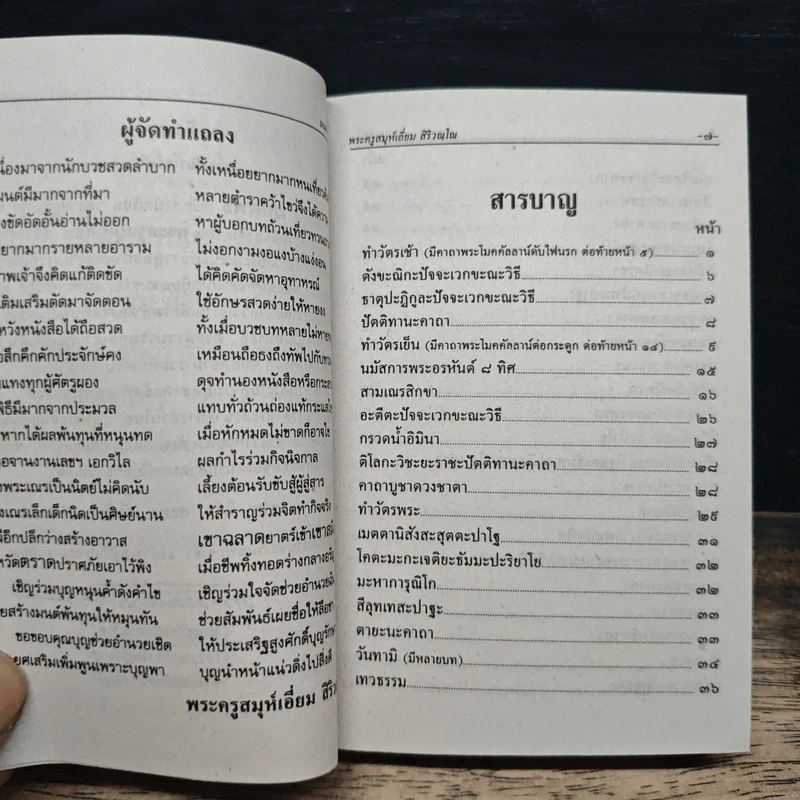 ผู้จัดทำแถลง
นื่องมาจากนักบวชสวดลำบาก ทั้งเหนื่อยยากมากหนเที่ยว
มนต์มีมากจากที่มา หลายตำราคว้าไขว่จึงได้ความ
งขัดอัดอั้นอ่านไม่ออก หาผู้บอกบทถ้วนเที่ยวทวนถาม
ยากมากรายหลายอาราม ไม่งอกงามงอแงบ้างแง่งอน
าพเจ้าจึงคิดแก้ติดขัด ได้คิดคัดจัดหาอุทาหรณ์
เติมเสริมตัดมาจัดตอน ใช้อักษรสวดง่ายให้หายงง
หวังหนังสือได้ถือสวด ทั้งเมื่อบวชบทหลายไม่หาย
อสึกคึกคักประจักษ์คง เหมือนถือธงถึงทัพไปกับ
แทงทุกผู้ศัตรูผอง ดุจทำนองหนังสือหรือกระ
พิธีมีมากจากประมวล แทบทั่วถ้วนถ่องแท้กระ
หากได้ผลพ้นทุนที่หนุนทด เมื่อหักหมดไม่ขาดก็อาจ
อจานงานเลขฯ เอกวิไล ผลกำไรร่วมกิจนิจกาล
งพระเณรเป็นนิตย์ไม่คิดนับ เลี้ยงต้อนรับขับสู้ผู้สู่สาร
งเณรเล็กเด็กนิดเป็นศิษย์นาน ให้สำราญร่วมจิตทำกิจจริง
มีอีกปลีกว่างสร้างอาวาส เขาฉลาดยาตร์เข้าเขา
หวัดตราดปราศภัยเอาไว้พิง เมื่อชีพทิ้งทอดร่างกลาง
เชิญร่วมบุญหนุนค้ำดังคำไข เชิญร่วมใจจัดช่วยอำนวย
ยสร้างมนต์พ้นทุนให้หมุนทัน ช่วยสัมพันธ์เผยชื่อให้ลือ
ขอขอบคุณบุญช่วยอำนวยเชิด ให้ประเสริฐสูงศักดิ์บุญรักษ
ยศเสริมเพิ่มพูนเพราะบุญพา บุญนำหน้าแน่วดิ่งไปสิ่งดี
พระครูสมุห์เอี่ยม สิริว
พระครูสมุห์เอี่ยม สิริวณฺโณ -๗-
สารบาญ
หน้า
ทำวัตรเช้า (มีคาถาพระโมคคัลลาน์ดับไฟนรก ต่อท้ายหน้า ๕) ๑
ตังขะณิกะปัจจะเวกขะณะวิธี ๖
ธาตุปะฏิกูละปัจจะเวกขะณะวิธี ๗
ปัตติทานะคาถา ๘
ทำวัตรเย็น (มีคาถาพระโมคคัลลาน์ต่อกระดูก ต่อท้ายหน้า ๑๔) ๙
นมัสการพระอรหันต์ ๘ ทิศ ๑๕
สามเณรสิกขา ๑๖
อะตีตะปัจจะเวกขะณะวิธี ๒๖
กรวดน้ำอิมินา ๒๗
ติโลกะวิชะยะราชะปัตติทานะคาถา ๒๘
คาถาบูชาดวงชาตา ๒๘
ทำวัตรพระ ๒๙
เมตตานิสังสะสุตตะปาโฐ ๓๑
โคตะมะกะเจติยะธัมมะปะริยาโย ๓๒
มะหาการุณิโก ๓๒
สีลุทเทสะปาฐะ ๓๓
ตายะนะคาถา ๓๓
วันทามิ (มีหลายบท) ๓๔
เทวธรรม ๓๖